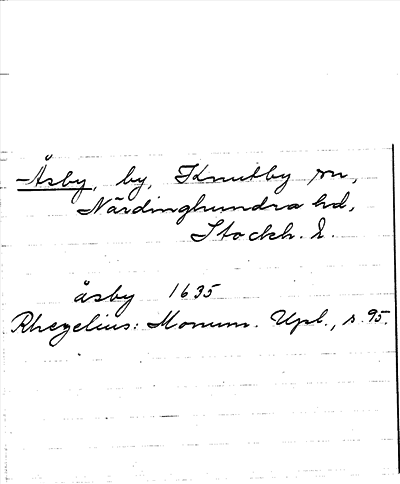 -Åsby, by, Knutby sn,
Närdinghundra hd,
Stockh. l.
åsby 1635
Rhezelius: Monum. Upl., s. 95.